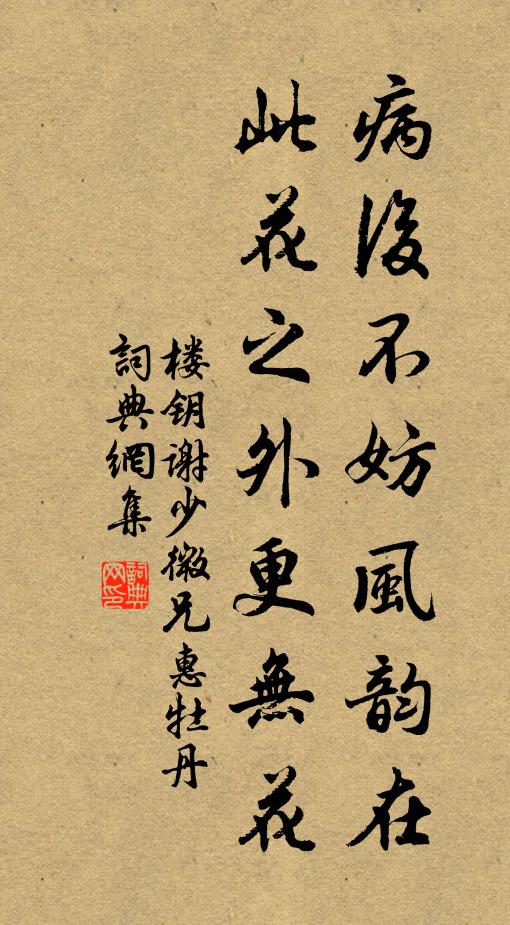 病後不妨風韵在
此花之外更無花
楼钥谢少微兄惠牡丹
詞典網集
詞典网印